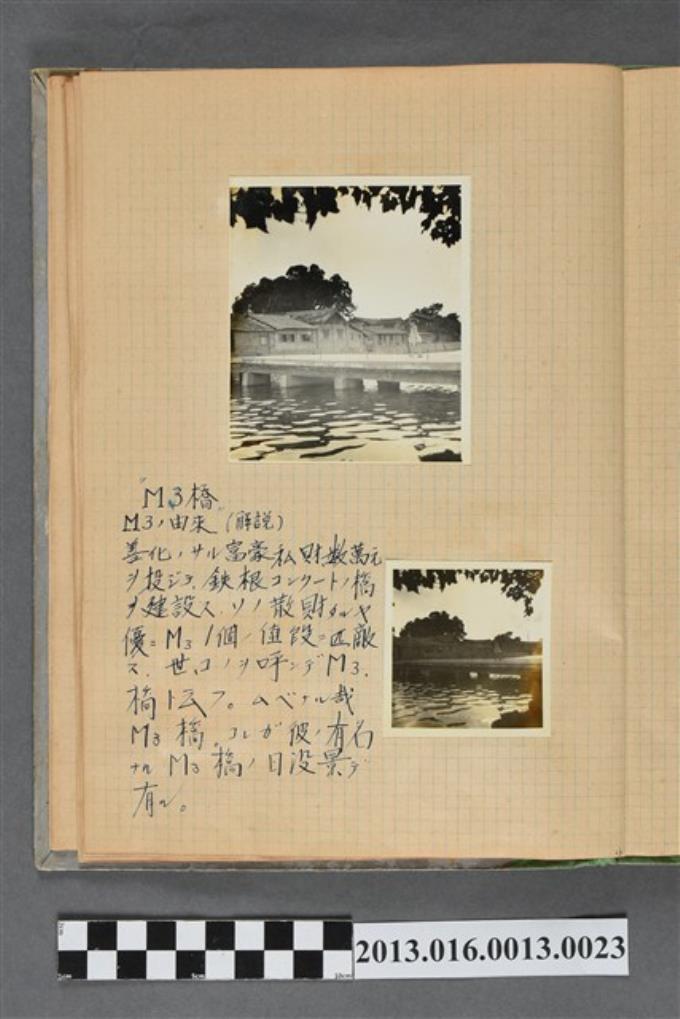 "M3橋"
M3ノ由来 (解説)
善化ノサル富豪私財数萬元
ヲ投ジテ、鉄根コンクートノ橋
ヲ建設ス.ソノ散財タルヤ
優ニM3 1個ノ値段ニ匹敵
ス. 世、コノヲ呼ンデM3.
橋ト云フ。ムベナル哉
M3 橋。コレガ彼ノ有名
ナル M3 橋ノ日没景デ
有ル。
2cm 5cm 10cm
2013.016.0013.0023